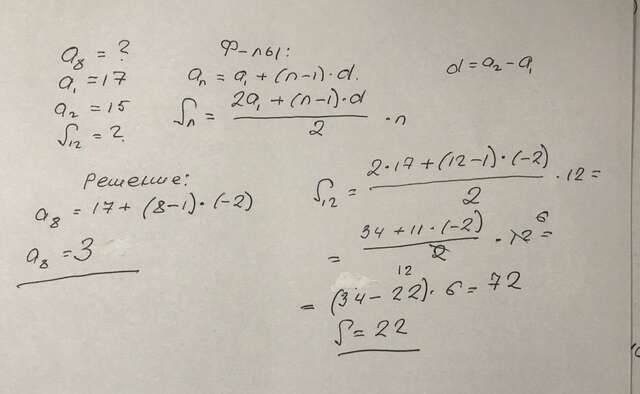 a₈ = ?
a₁ = 17
a₂ = 15
S₁₂ = ?
Ф-лы:
aₙ = a₁ + (n-1)·d.
Sₙ = (2a₁ + (n-1)·d)/2 · n
d = a₂ - a₁
Решение:
a₈ = 17 + (8-1)·(-2)
a₈ = 3
S₁₂ = (2·17 + (12-1)·(-2))/2 · 12 =
= (34 + 11·(-2))/2 · 12 6 =
12
= (34 - 22)· 6 = 72
S = 22